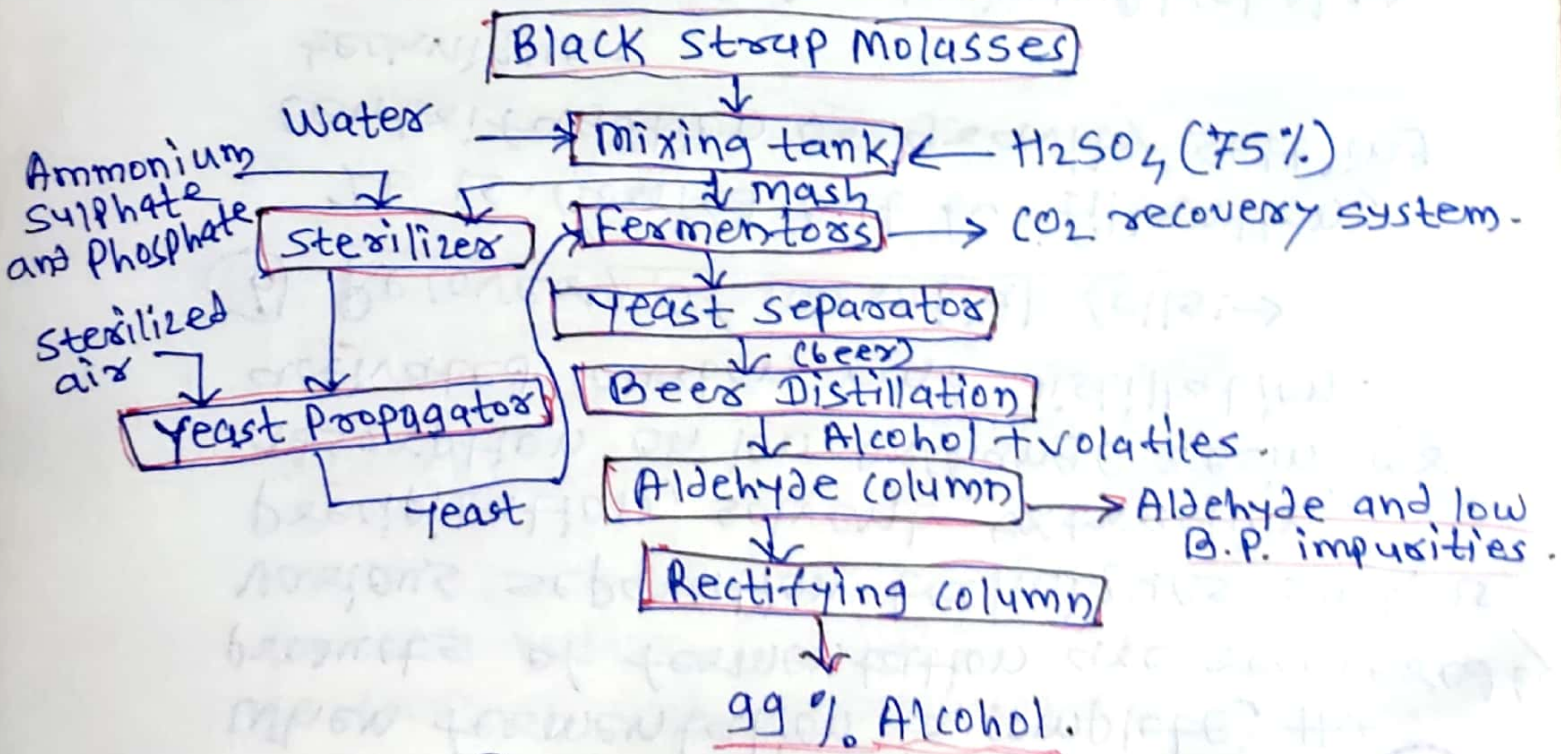 Black Strap Molasses
Water
Mixing tank
H2SO4 (75%)
Ammonium
Sulphate
and Phosphate
mash
Sterilizer
Fermentors
CO2 recovery system.
Yeast separator
Sterilized
air
(beer)
Beer Distillation
Yeast Propagator
Alcohol + volatiles.
yeast
Aldehyde column
Aldehyde and low
B.P. impurities.
Rectifying column
99% Alcohol.